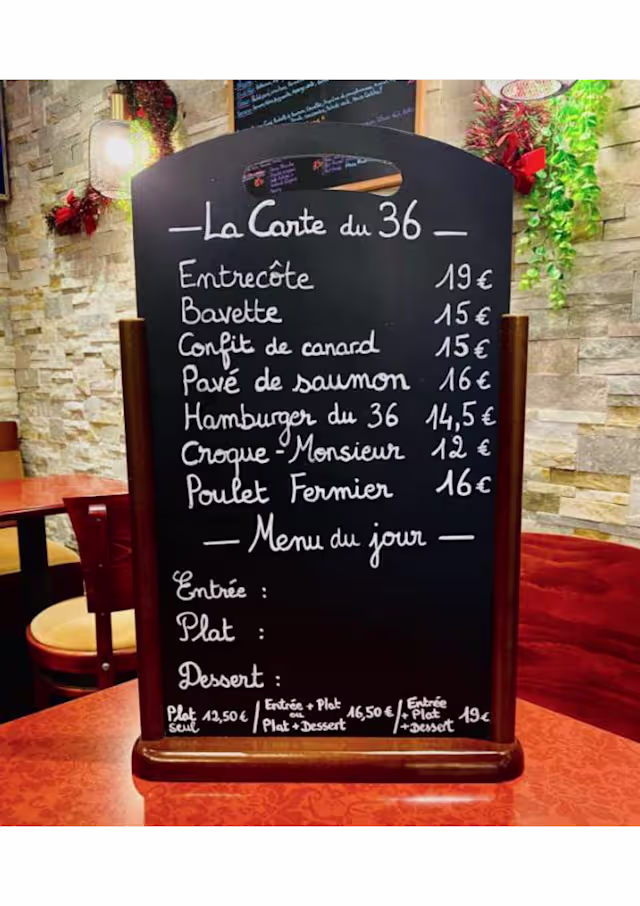 — La Carte du 36 —
Entrecôte 19 €
Bavette 15 €
Confit de canard 15 €
Pavé de saumon 16 €
Hamburger du 36 14,5 €
Croque-Monsieur 12 €
Poulet Fermier 16 €
— Menu du jour —
Entrée :
Plat :
Dessert :
Plat seul 12,50 € / Entrée + Plat ou Plat + Dessert 16,50 € / Entrée + Plat + Dessert 19 €